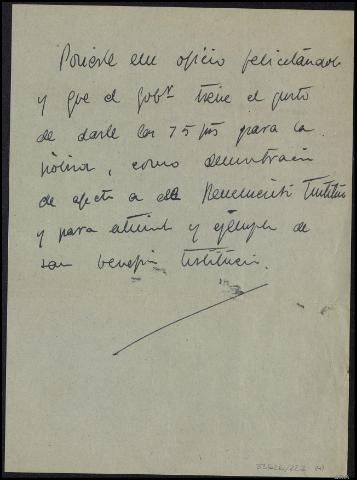 Ponerle un oficio felicitándole
y que el Gobr tiene el gusto
de darle las 75 pts para la
, como demostración
de afecto a Institución
y para estímulo y ejemplo de
tan benéfica Institución.